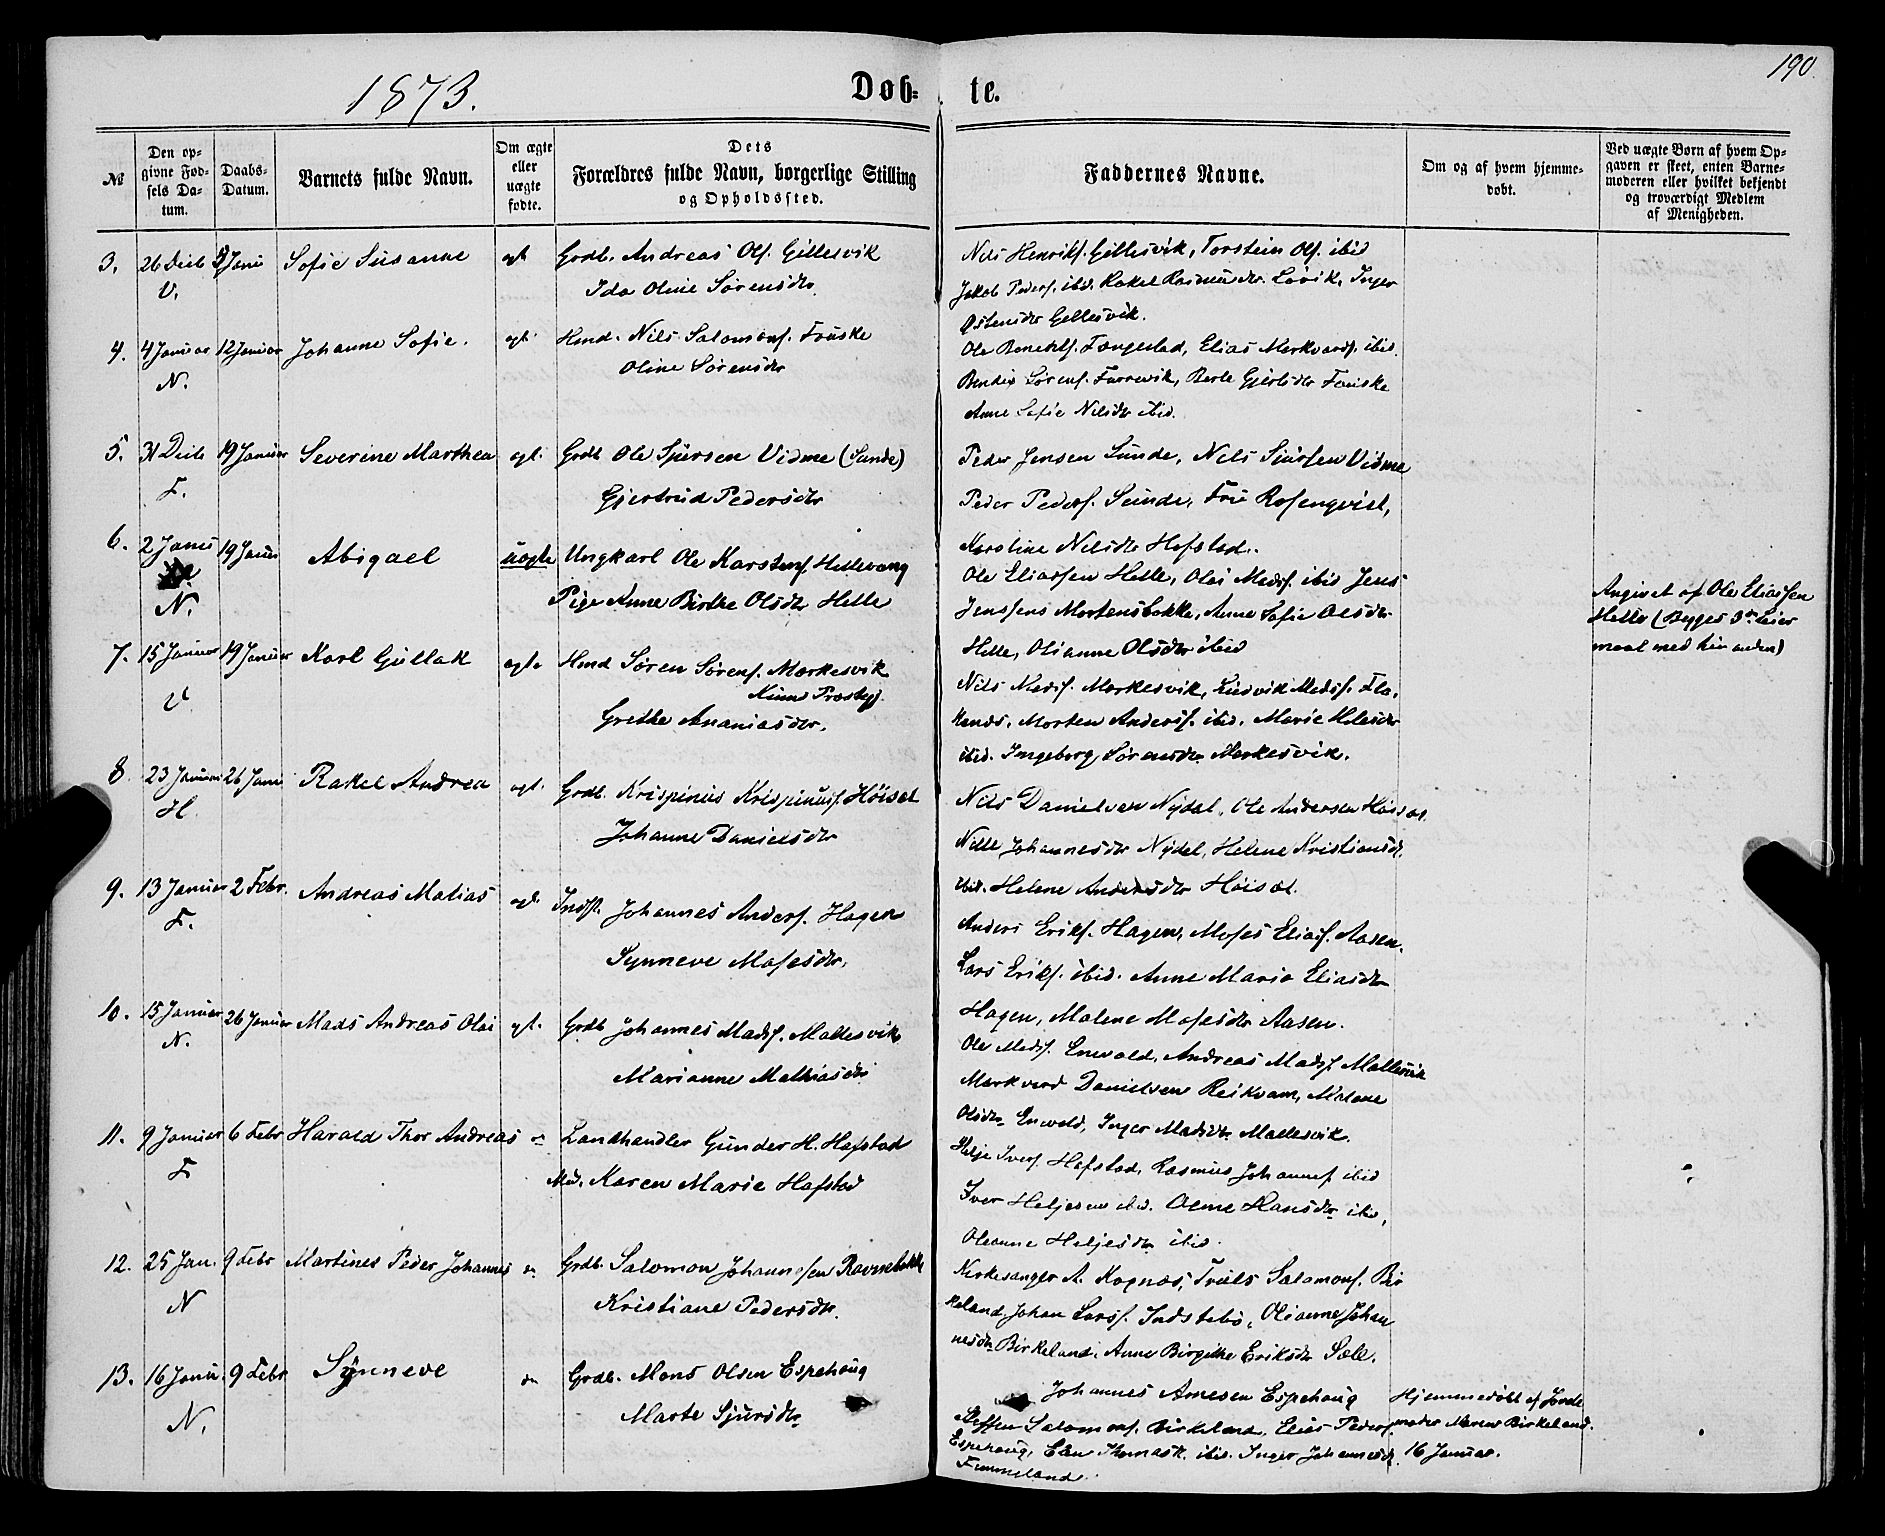 1873.
Døb-te.
190.
№
Den opgivne Fødsels Datum.
Daabs-Datum.
Barnets fulde Navn.
Om ægte eller uægte fødte.
Dets Forældres fulde Navn, borgerlige Stilling og Opholdssted.
Faddernes Navne.
Om og af hvem hjemmedøbt.
Ved uægte Børn af hvem Opgaven er skeet, enten Barnemoderen eller hvilket bekjendt og troværdigt Medlem af Menigheden.
3. 26 Decb V. Janu Sofie Susanne ægt. Grdb. Andreas Ols. Gillesvik
Ida Oline Sørensdtr.
Nils Henriks. Gillesvik, Torstein Ols. ibid
Jakob Peders. ibid. Rakel Rasmusdtr. Løvik, Inger
Østensdtr Gillesvik.
4. 4 Januar N. 12 Januar Johanne Sofie. ægt. Hmd. Nils Salomons. Fouske
Oline Sørensdtr
Ole Fængestad, Elias Markvards. ibid.
Bendix Sørens. Furrevik, Berte Gjertsdtr Fouske
Anne Sofie Nilsdtr ibid.
5. 31 Decb F. 19 Januar Severine Marthea ægt. Grdb Ole Sjursen Vidme (Sunde)
Gjertrud Pedersdtr
Peder Jensen Sunde, Nils Sjursen Vidme
Peder Peders. Sunde, Fru Rosenqvist,
Karoline Nilsdtr Hofstad.
6. 2 Janu N. 19 Januar Abigael uægte Ungkarl Ole Karstens. Hellevang
Pige Anne Birthe Olsdtr Helle
Ole Eliassen Helle, Olai Mads. ibid Jens
Jenssens Mortensbakke, Anne Sofie Olsdtr
Helle, Olianne Olsdtr ibid
Angivet af Ole Eliassen
Helle (Begges 3die Leier
maal med hinanden)
7. 15 Januar V. 19 Januar Karl Gullak ægte Hmd Søren Sørens. Markesvik
Kinns Præstegj.
Grethe Ananiasdtr.
Nils Mads. Markesvik, Ludvik Mads. Flo,
Morten Anders. ibid. Marie
ibid. Ingeborg Sørensdtr Markesvik.
8. 23 Januar H. 26 Janu Rakel Andrea ægt. Grdb. Krispinus Krispinuss. Høisæt
Johanne Danielsdtr
Nils Danielsen Nydal, Ole Andersen Høisæt.
Nille Johannesdtr Nydal, Helene Kristiansdtr.
ibid. Helene Andersdtr Høisæt.
9. 13 Januar F. 2 Febr. Andreas Matias ægt. Indst. Johannes Anders. Hagen
Synneve Mosesdtr.
Anders Eriks. Hagen, Moses Elias. Aasen.
Lars Eriks. ibid. Anne Marie Eliasdtr
Hagen, Malene Mosesdtr Aasen.
10. 15 Januar N. 26 Januar Mads Andreas Olai ægt. Grdb Johannes Mads. Mallesvik
Marianne Mathiasdtr
Ole Mads. Enevald, Andreas Mads. Mallesvik
Markvard Danielsen Reikvam, Malene
Olsdtr Enevald, Inger Madsdtr Mallesvik.
11. 9 Januar F 6 Febr Harald Thor Andreas Landhandler Gunder H. Hafstad
Md. Karen Marie Hafstad
Helje Ivers. Hafstad, Rasmus Johannes. ibid
Iver Heljesen ibid. Oline Hansdtr ibid,
Oleanne Heljesdtr ibid.
12. 25 Jan. N 9 Febr Martines Peder Johannes Grdb. Salomon Johannessen Ravnebakke
Kristiane Pedersdtr.
Kirkesanger A. Kopnæs, Truls Salamons. Bir
keland, Johan Lars. Indstebø, Olianne Johan
nesdtr Birkeland, Anne Birgithe Eriksdtr Sæle.
13. 16 Janu. N. 9 Febr Synneve Grdb. Mons Olsen Espehoug
Marte Sjursdtr
Johannes Arnesen Espehoug
Steffen Salomons. Birkeland, Elias Peders.
Espehoug, Elen ibid. Inger Johannesdtr
Femmeland.
Hjemmedøbt af Jorde
moder Maren Birkeland.
16 Januar.